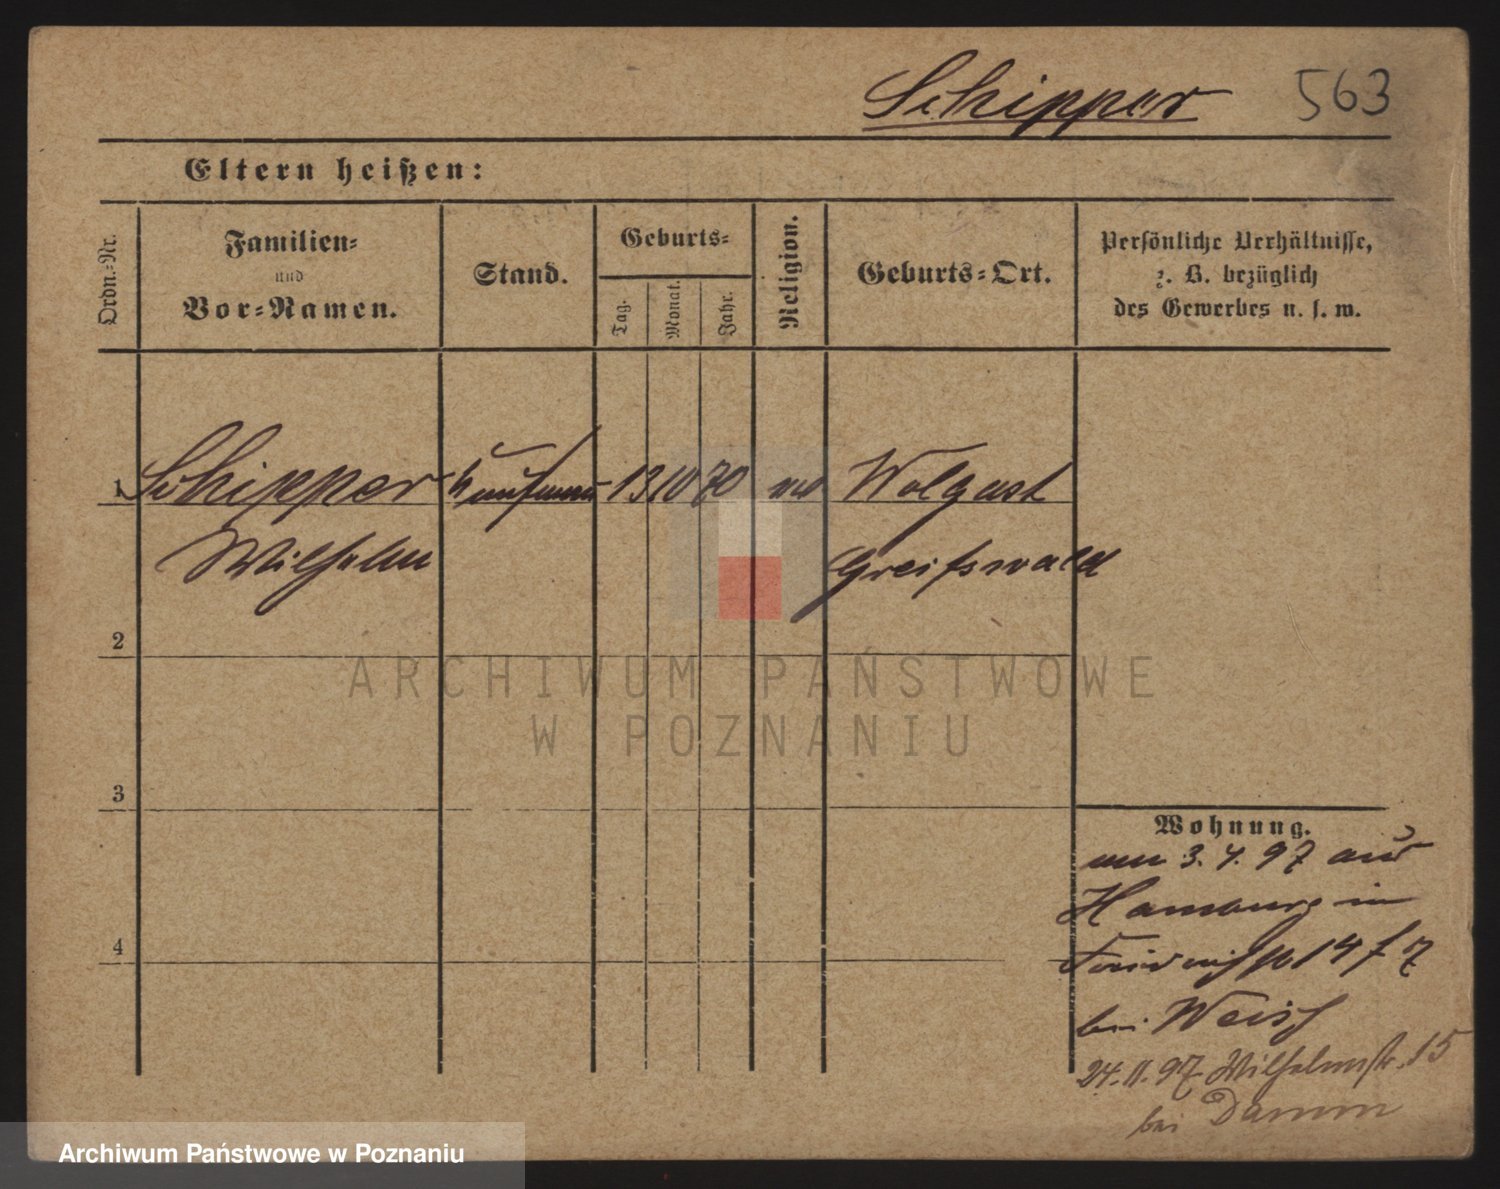 Schipper 563
Eltern heißen:
Ordn.-Nr.
Familien-
und
Vor-Namen.
Stand.
Geburts-
Tag.
Monat.
Jahr.
Religion.
Geburts-Ort.
Persönliche Verhältnisse,
z. B. bezüglich
des Gewerbes u. s. w.
1 Schipper Kaufmann 13 10 70 Wolgast
Wilhelm Greifswald
2
3
4
Wohnung.
3. 4. 97 aus
Hamburg in
14
bei Weiss
24. 11. 97 Wilhelmstr. 15
bei Damm
ARCHIWUM PAŃSTWOWE
W POZNANIU
Archiwum Państwowe w Poznaniu